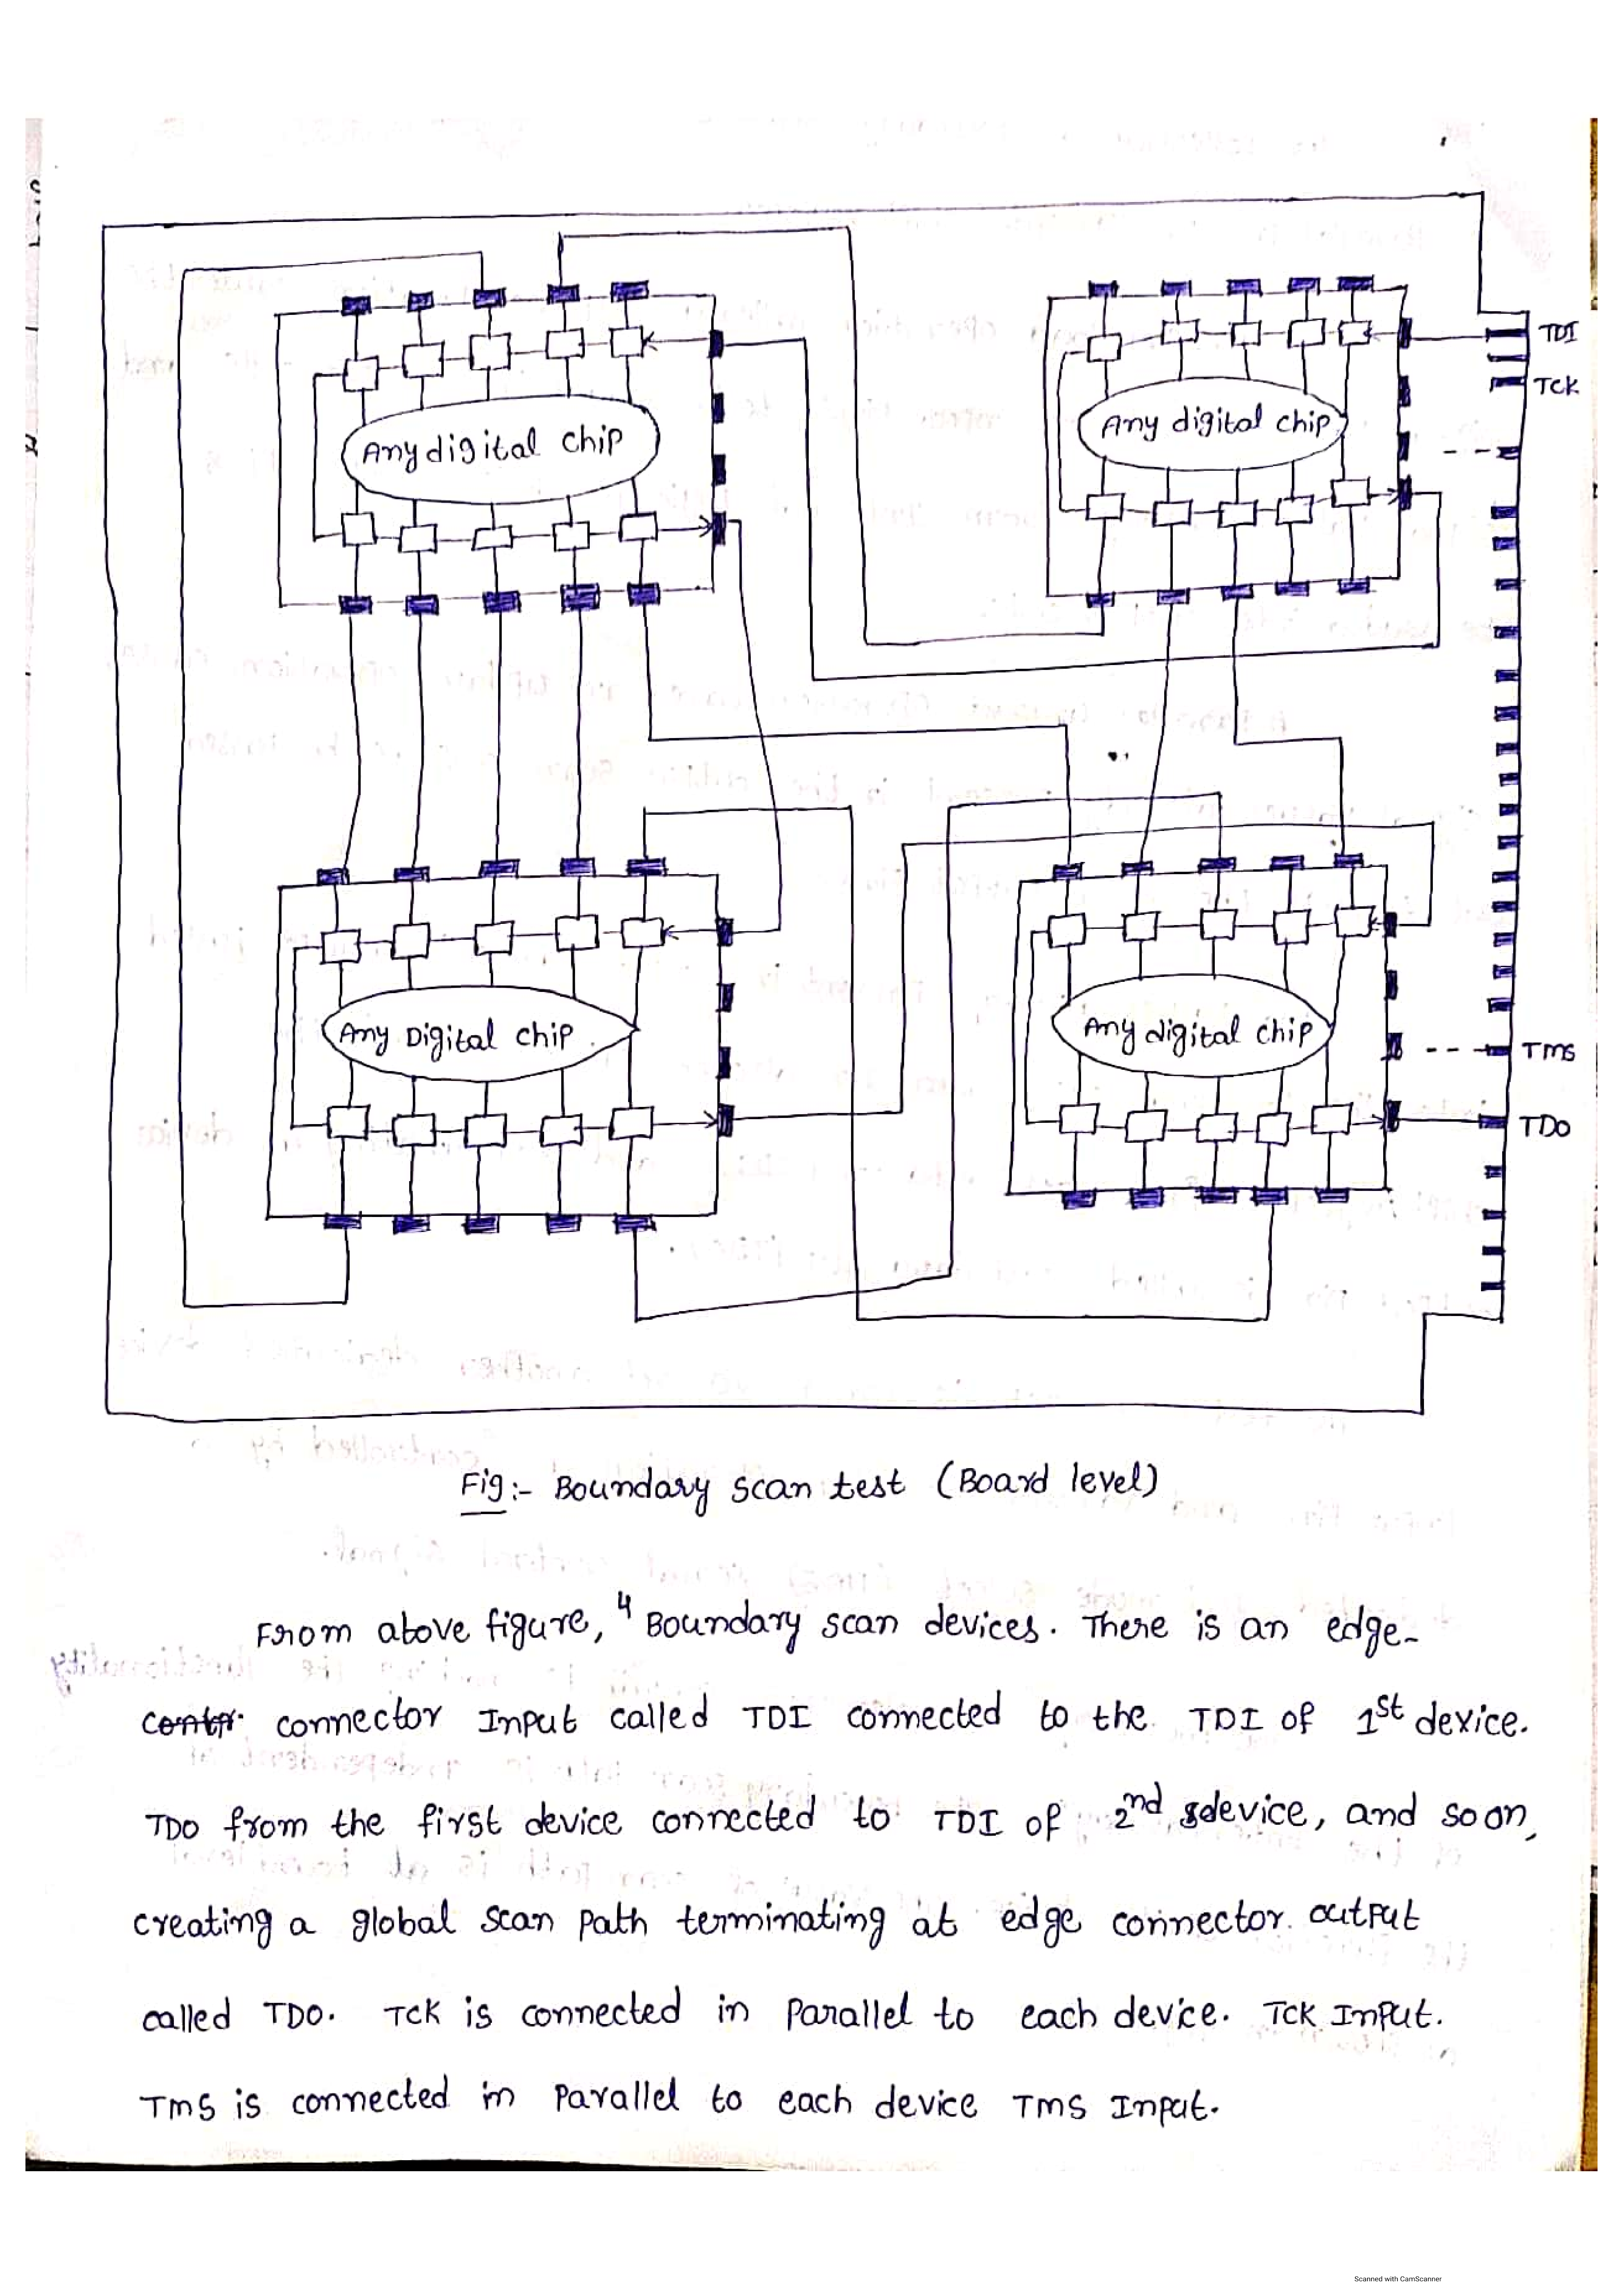 TDI
TCK
Any digital chip
Any digital chip
Any Digital chip
Any digital chip
TMS
TDO
Fig:- Boundary scan test (Board level)
From above figure, 4 Boundary scan devices. There is an edge-
contr. connector Input called TDI connected to the TDI of 1st device.
TDO from the first device connected to TDI of 2nd sdevice, and soon,
creating a global scan path terminating at edge connector output
called TDO. TCK is connected in parallel to each device. TCK Input.
TMS is connected in parallel to each device TMS Input.
Scanned with CamScanner